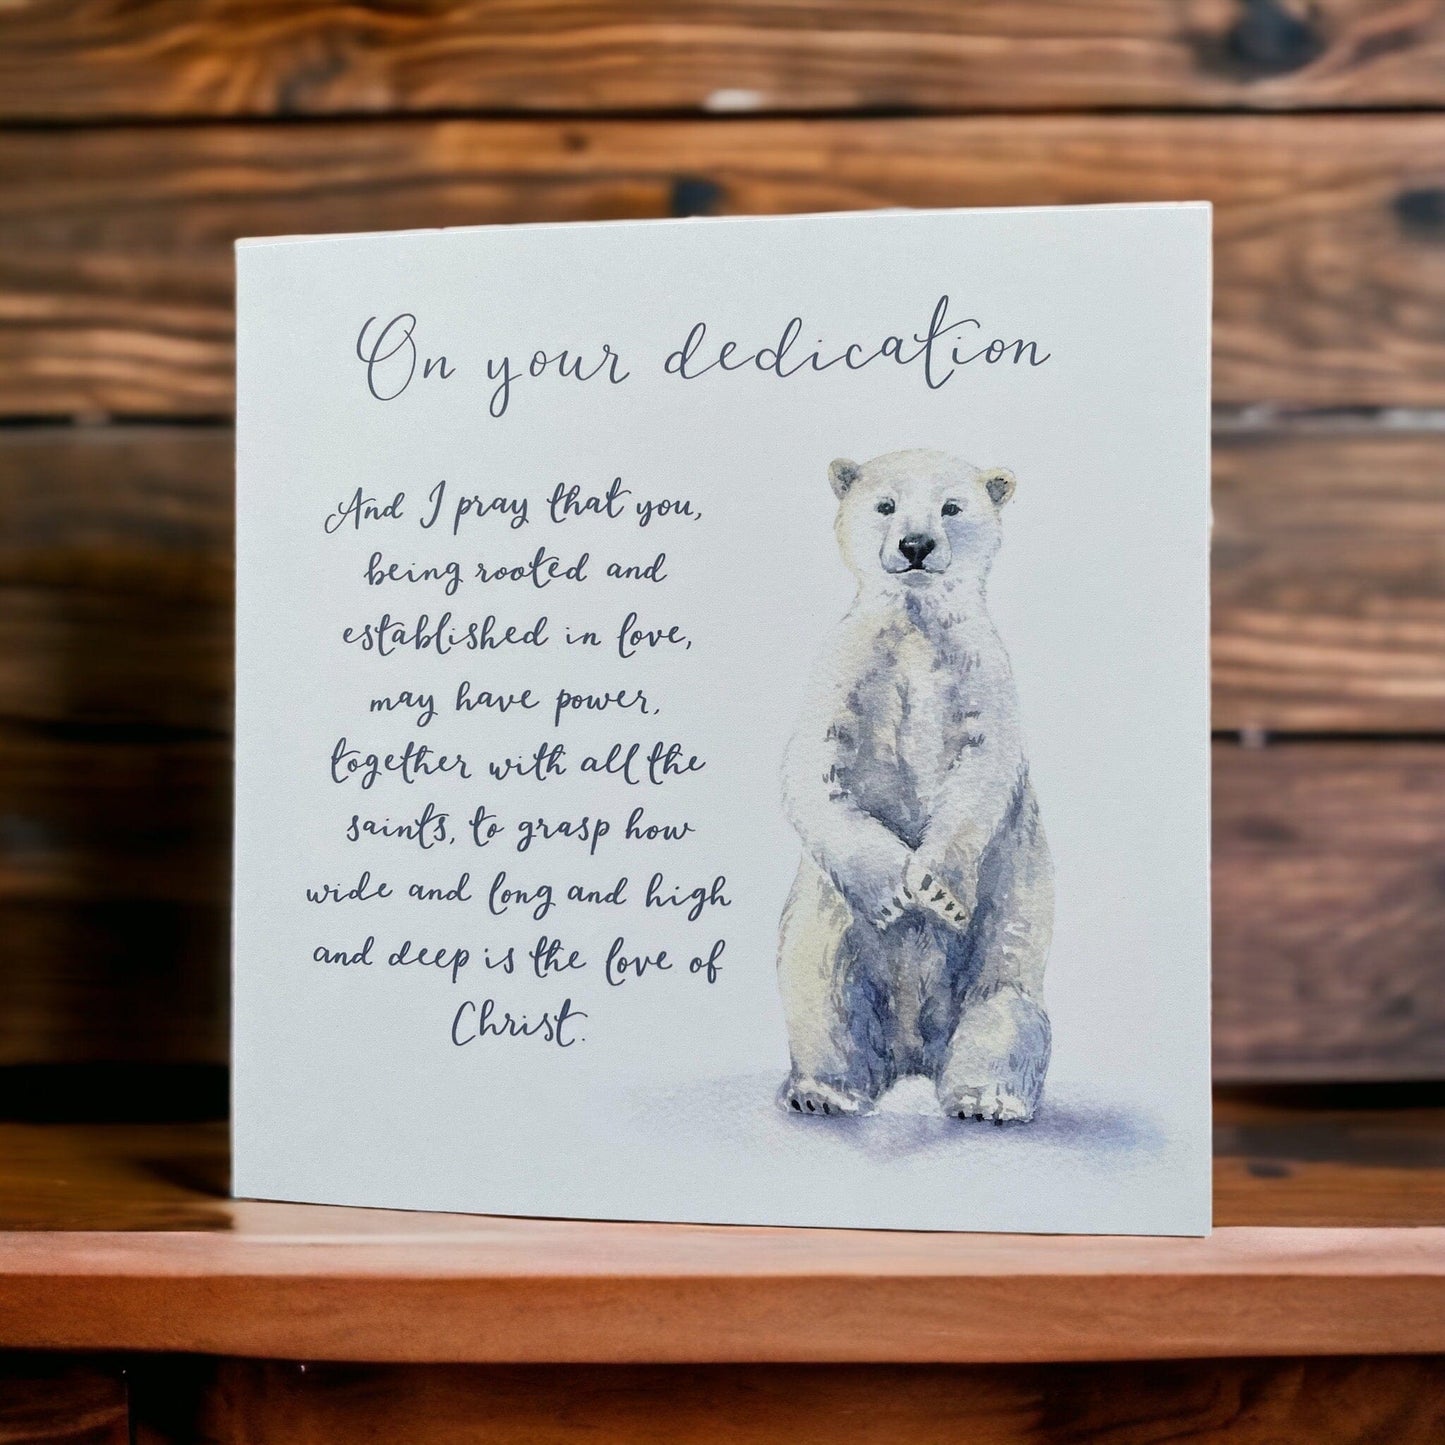 On your dedication
And I pray that you,
being rooted and
established in love,
may have power,
together with all the
saints, to grasp how
wide and long and high
and deep is the love of
Christ.